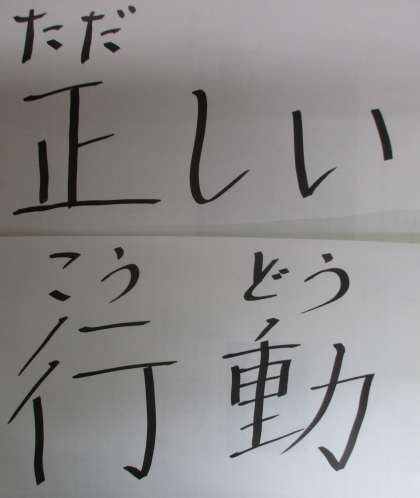 ただ
正しい
こう どう
行動